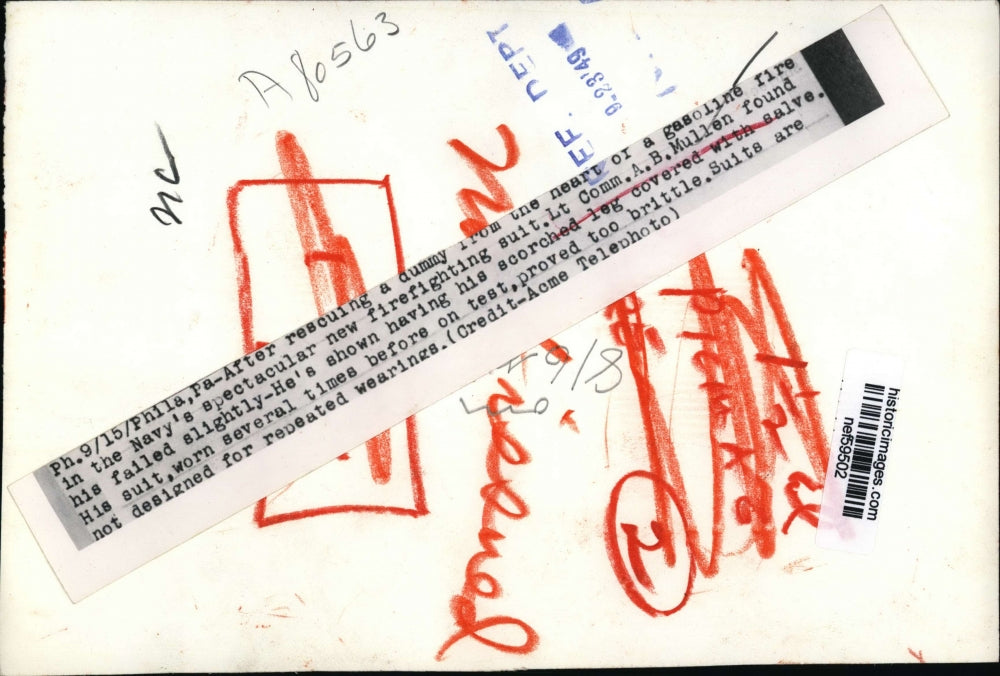 A 80563
REF. DEPT
9-23'49
nc
Ph.9/15/Phila,Pa-After rescuing a dummy from the heart of a gasoline fire
in the Navy's spectacular new firefighting suit.Lt Comm.A.B.Mullen found
his failed slightly-He's shown having his scorched leg covered with salve.
His suit,worn several times before on test,proved too brittle.Suits are
not designed for repeated wearings.(Credit-Acme Telephoto)
#918
2
historicimages.com
nef59502